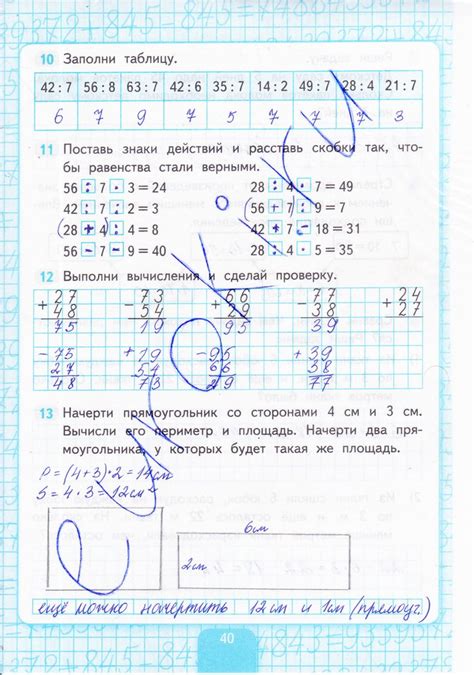 10 Заполни таблицу.
42 : 7 56 : 8 63 : 7 42 : 6 35 : 7 14 : 2 49 : 7 28 : 4 21 : 7
6 7 9 7 5 7 7 7 3
11 Поставь знаки действий и расставь скобки так, что-
бы равенства стали верными.
56 : 7 · 3 = 24 28 : 4 · 7 = 49
42 : 7 : 2 = 3 (56 + 7) : 9 = 7
(28 + 4) : 4 = 8 42 + 7 - 18 = 31
56 - 7 - 9 = 40 28 : 4 · 5 = 35
12 Выполни вычисления и сделай проверку.
+ 27 - 73 + 66 - 77 + 24
48 54 29 38 27
75 19 95 39
- 75 + 19 - 95 + 39
27 54 29 38
48 73 77
13 Начерти прямоугольник со сторонами 4 см и 3 см.
Вычисли его периметр и площадь. Начерти два пря-
моугольника, у которых будет такая же площадь.
P = (4+3) · 2 = 14 см
S = 4 · 3 = 12 см²
6 см
2 см
ещё можно начертить 12 см и 1 см (прямоуг.)
40